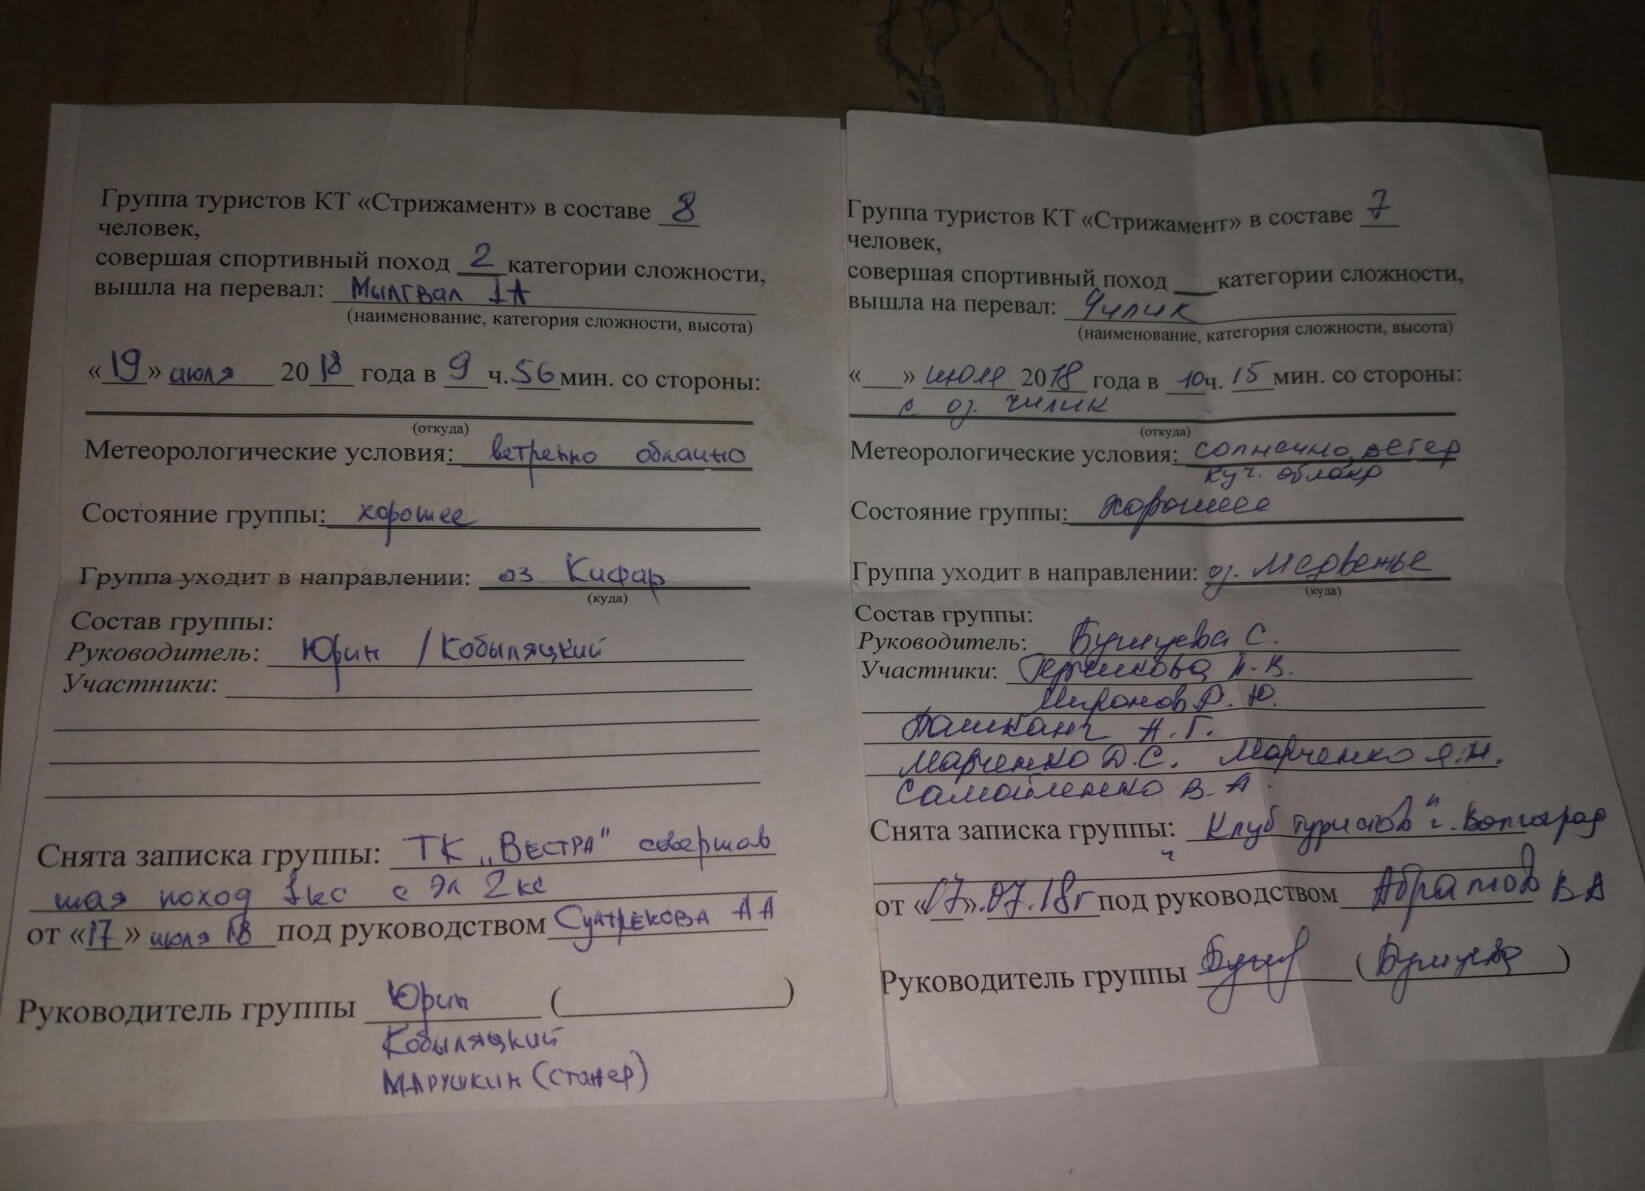 Группа туристов КТ «Стрижамент» в составе 8
человек,
совершая спортивный поход 2 категории сложности,
вышла на перевал: Мылгвал 1А
(наименование, категория сложности, высота)
«19» июля 2018 года в 9 ч. 56 мин. со стороны:
(откуда)
Метеорологические условия: ветренно облачно
Состояние группы: хорошее
Группа уходит в направлении: оз Кифар
(куда)
Состав группы:
Руководитель: Юрин / Кобыляцкий
Участники:
Снята записка группы: ТК „Вестра" совершав
шая поход 1кс с эл 2кс
от «17» июля 18 под руководством АА
Руководитель группы Юрин ( )
Кобыляцкий
Марушкин (стажер)
Группа туристов КТ «Стрижамент» в составе 7
человек,
совершая спортивный поход ___ категории сложности,
вышла на перевал: Чилик
(наименование, категория сложности, высота)
«___» июля 2018 года в 10ч. 15 мин. со стороны:
с оз. Чилик
(откуда)
Метеорологические условия: солнечно, ветер
куч. облакр
Состояние группы: хорошее
Группа уходит в направлении: оз. Медвежье
(куда)
Состав группы:
Руководитель: С.
Участники: В.
Миронов Р. Ю.
А. Г.
Марченко Д.С. Марченко Я.Н.
Самойленко В. А.
Снята записка группы: Клуб туристов" г. Волгоград
от «17».07.18г под руководством Абрамов В А
Руководитель группы